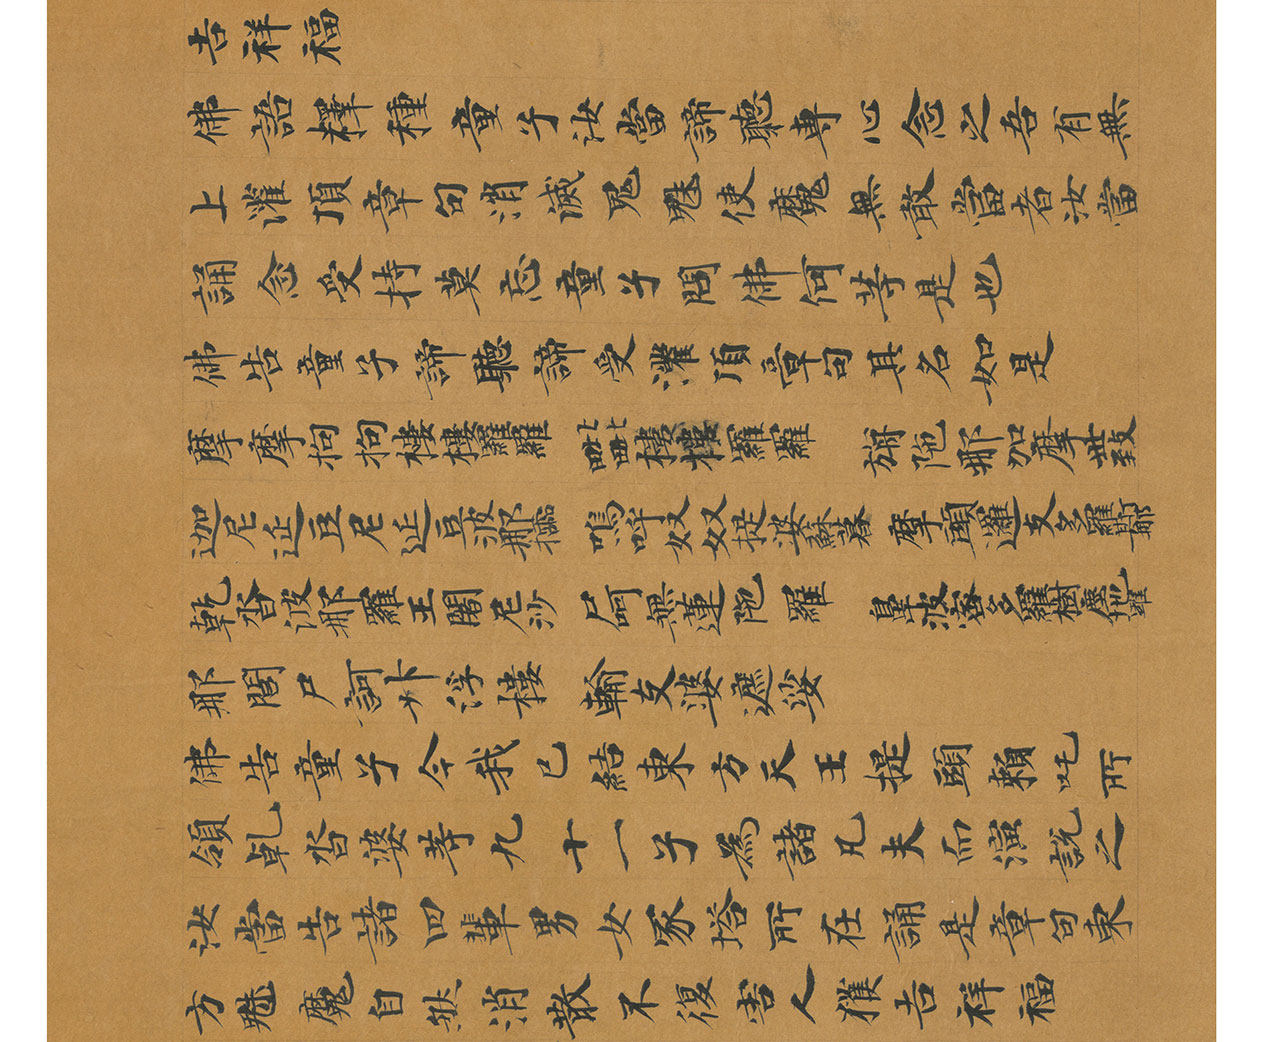 吉祥福
佛語釋種童子汝當諦聽專心念之吾有無
上灌頂章句消滅鬼魅使魔無敢當者汝當
誦念受持莫忘童子問佛何等是也
佛告童子諦聽諦受灌頂章句其名如是
摩摩拘拘樓樓羅羅 毗毗樓樓羅羅 旃陀那加摩世致
迦尼延豆尼延豆波那 嗚呼奴奴提婆蘇暮 摩頭邏支多羅斯那
乾沓波那羅王闍尼沙 尸呵無蓮陀羅 鼻波蜜多羅樹塵陀羅
那閭尸訶 浮樓 輸支婆遮娑
佛告童子今我已結東方天王提頭賴吒所
領乾沓婆等九十一子為諸凡夫而演說之
汝當告諸四輩男女冢塔所在誦是章句東
方魅魔自然消散不復害人獲吉祥福